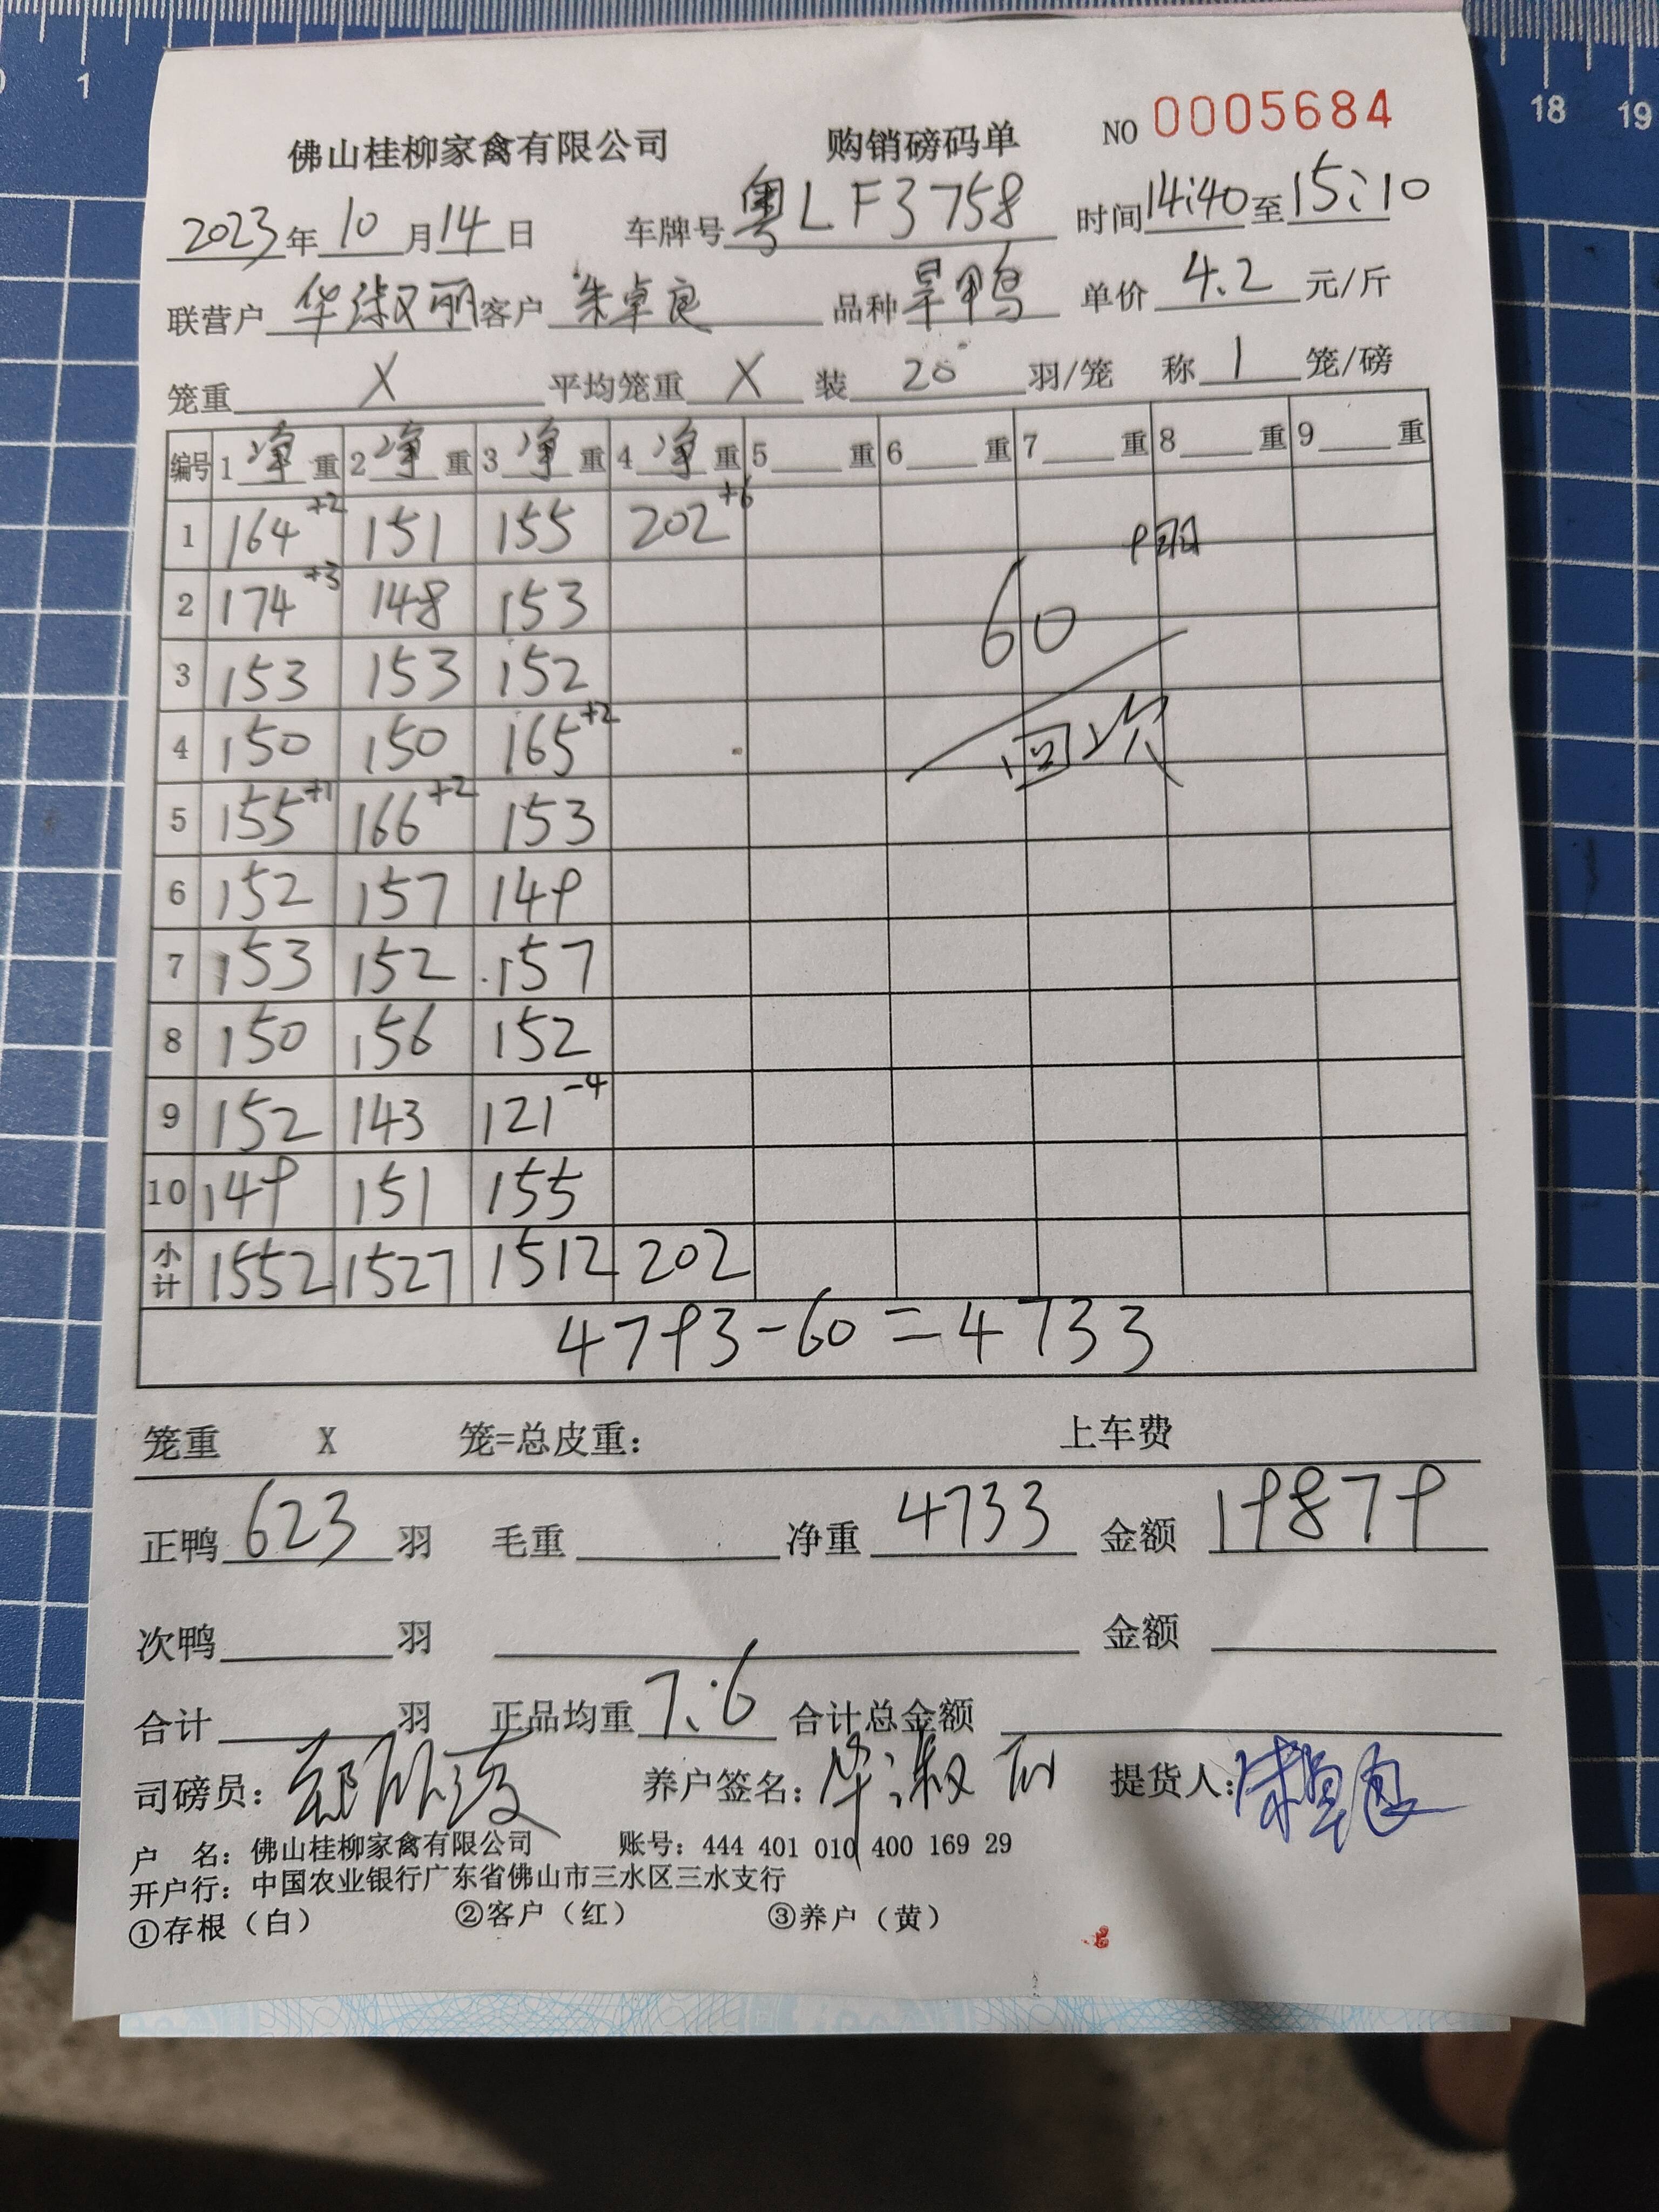 0 1 18 19
佛山桂柳家禽有限公司 购销磅码单 NO 0005684
2023年10月14日 车牌号 粤LF3758 时间14:40至15:10
联营户 华淑丽 客户 朱卓良 品种 旱鸭 单价 4.2 元/斤
笼重 X 平均笼重 X 装 20 羽/笼 称 1 笼/磅
编号 1净重 2净重 3净重 4净重 5重 6重 7重 8重 9重
1 164+2 151 155 202+6
2 174+3 148 153
3 153 153 152
60
4 150 150 165+2
回次
5 155+1 166+2 153
6 152 157 149
7 153 152 157
8 150 156 152
9 152 143 121-4
10 149 151 155
小计 1552 1527 1512 202
4793-60=4733
笼重 X 笼=总皮重: 上车费
正鸭 623 羽 毛重 净重 4733 金额 19879
次鸭 羽 金额
合计 羽 正品均重 7.6 合计总金额
司磅员: 养户签名: 华淑丽 提货人:
户 名: 佛山桂柳家禽有限公司 账号: 444 401 010 400 169 29
开户行: 中国农业银行广东省佛山市三水区三水支行
①存根（白） ②客户（红） ③养户（黄）